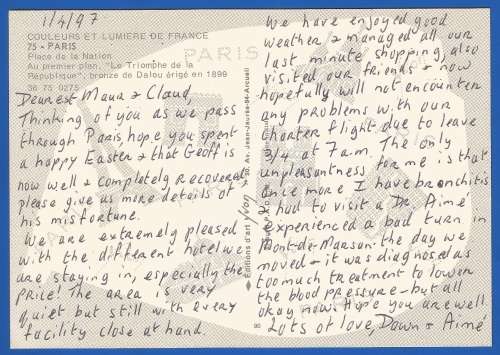 1/4/97
COULEURS ET LUMIERE DE FRANCE
75 - PARIS
Place de la Nation
Au premier plan, "Le Triomphe de la
République", bronze de Dalou érigé en 1899
36 75 0275
Dearest Maua & Claud,
Thinking of you as we pass
through Paris hope you spent
a happy Easter & that Geoff is
now well & completely recovered
please give us more details of
his misfortune.
We are extremely pleased
with the different hotel we
are staying in, especially the
price! The area is very
quiet but still with every
facility close at hand.
PARIS
Editions d'art Yvon
Av. Jean-Jaurès-94-Arcueil
We have enjoyed good
weather & managed all our
last minute shopping, also
visited our friends & now
hopefully will not encounter
any problems with our
charter flight due to leave
3/4 at 7am. The only
unpleasantness for me is that
once more I have bronchitis
& had to visit a Dr. Aimé
experienced a bad turn in
Mont-de-Marsan the day we
moved & it was diagnosed as
too much treatment to lower
the blood pressure - but all
okay now. Hope you are well.
Lots of love, Dawn & Aimé